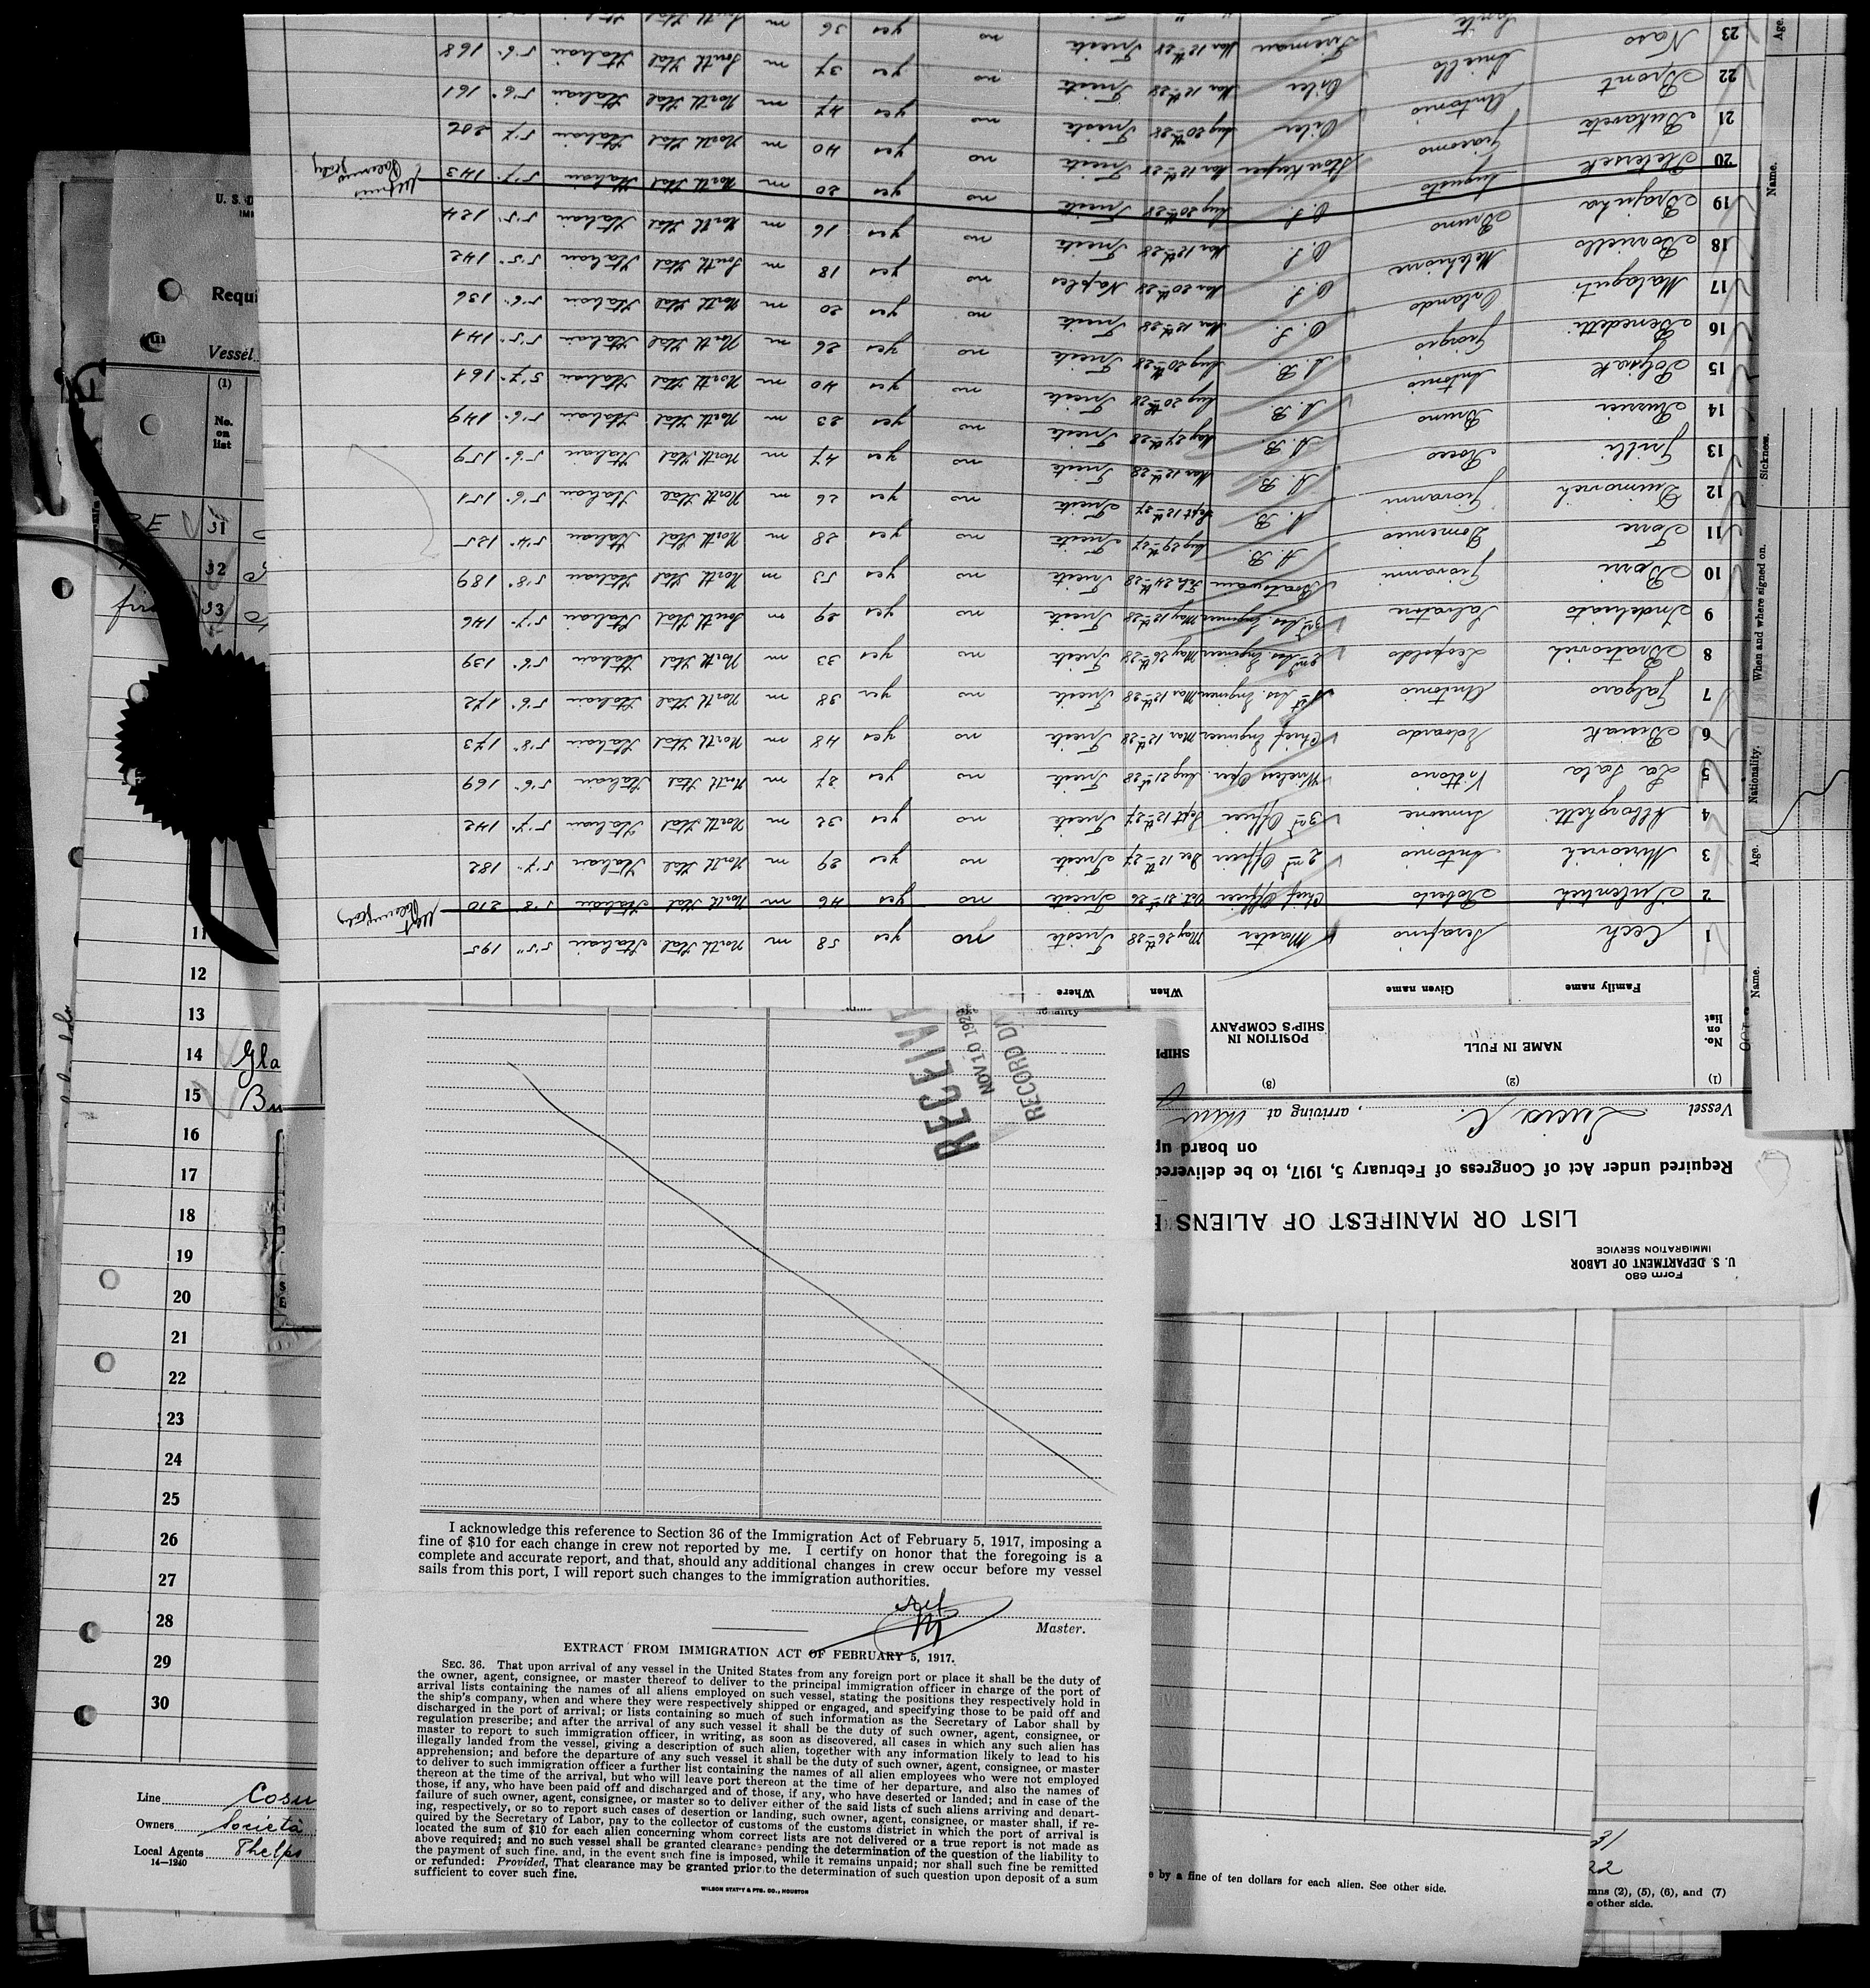 Form 680
U. S. DEPARTMENT OF LABOR
IMMIGRATION SERVICE
LIST OR MANIFEST OF ALIENS
Required under Act of Congress of February 5, 1917, to be delivered
on board up
Vessel Lucia C. , arriving at
(1) (2) (3)
No. on list NAME IN FULL POSITION IN SHIP'S COMPANY SHIP
Family name Given name When Where
1 Cech Serafino Master May 26th-28 Trieste no yes 58 m North Ital Italian 5'5" 195
2 Roberto Chief Officer Oct. 31st-26 Trieste no yes 46 m North Ital Italian 5'8" 210
3 Miricovich Antonio 2nd Officer Dec 12th-27 Trieste no yes 29 m North Ital Italian 5'7" 182
4 Alborghetti Simeone 3rd Officer Sept 12th-27 Trieste no yes 32 m North Ital Italian 5'7" 142
5 La Sala Vittorio Wireless Oper. Aug 21st-28 Trieste no yes 27 m North Ital Italian 5'6" 169
6 Bisiak Edoardo Chief Engineer Mar 12th-28 Trieste no yes 48 m North Ital Italian 5'8" 173
7 Falgaro Antonio 1st Ass. Engineer Mar 12th-28 Trieste no yes 38 m North Ital Italian 5'6" 172
8 Bratovich Leopoldo 2nd Ass. Engineer May 26th-28 Trieste no yes 33 m North Ital Italian 5'6" 139
9 Indelicato Salvatore 3rd Ass. Engineer May 12th-28 Trieste no yes 29 m South Ital Italian 5'7" 146
10 Borri Giovanni Boatswain Feb 24th-28 Trieste no yes 53 m North Ital Italian 5'8" 189
11 Torre Domenico A. B Aug 29th-27 Trieste no yes 28 m North Ital Italian 5'4" 125
12 Giovanni A. B Sept 12th-27 Trieste no yes 26 m North Ital Italian 5'6" 151
13 Grilli Rocco A. B Mar 12th-28 Trieste no yes 47 m North Ital Italian 5'6" 159
14 Bruno A. B May 27th-28 Trieste no yes 23 m North Ital Italian 5'6" 149
15 Antonio A. B. Aug 20th-28 Trieste no yes 40 m North Ital Italian 5'7" 161
16 Benedetti Giorgio A. B Aug 20th-28 Trieste no yes 26 m North Ital Italian 5'5" 144
17 Malaguti Orlando O. S. Mar 12th-28 Trieste no yes 20 m North Ital Italian 5'6" 136
18 Borriello Melchiorre O. S Mar 20th-28 Naples no yes 18 m South Ital Italian 5'5" 142
19 Bruno O. S Mar 12th-28 Trieste no yes 16 m North Ital Italian 5'5" 124
20 Augusto O. S Aug 20th-28 Trieste no yes 20 m North Ital Italian 5'7" 143
21 Giacomo Store Keeper Mar 12th-28 Trieste no yes 40 m North Ital Italian 5'7" 206
22 Pront Antonio Oiler Aug 20th-28 Trieste no yes 47 m North Ital Italian 5'6" 161
23 Naso Aniello Oiler Mar 12th-28 Trieste no yes 37 m South Ital Italian 5'6" 168
Fireman Mar 12th-28 no yes 36 m
Palermo Italy
U. S. D
Requi
Vessel
(1)
No.
on
list
31
32
33
11
12
13
14 Gla
15 Bu
16
17
18
19
20
21
22
23
24
25
26
27
28
29
30
Line Cosu
Owners Societa
Local Agents Phelps
14—1240
Name.
Age.
Nationality.
When and where signed on.
Sickness.
Name.
Age.
RECEIVE
NOV 10 192
RECORD DI
I acknowledge this reference to Section 36 of the Immigration Act of February 5, 1917, imposing a
fine of $10 for each change in crew not reported by me. I certify on honor that the foregoing is a
complete and accurate report, and that, should any additional changes in crew occur before my vessel
sails from this port, I will report such changes to the immigration authorities.
Master.
EXTRACT FROM IMMIGRATION ACT OF FEBRUARY 5, 1917.
SEC. 36. That upon arrival of any vessel in the United States from any foreign port or place it shall be the duty of
the owner, agent, consignee, or master thereof to deliver to the principal immigration officer in charge of the port of
arrival lists containing the names of all aliens employed on such vessel, stating the positions they respectively hold in
the ship's company, when and where they were respectively shipped or engaged, and specifying those to be paid off and
discharged in the port of arrival; or lists containing so much of such information as the Secretary of Labor shall by
regulation prescribe; and after the arrival of any such vessel it shall be the duty of such owner, agent, consignee, or
master to report to such immigration officer, in writing, as soon as discovered, all cases in which any such alien has
illegally landed from the vessel, giving a description of such alien, together with any information likely to lead to his
apprehension; and before the departure of any such vessel it shall be the duty of such owner, agent, consignee, or master
to deliver to such immigration officer a further list containing the names of all alien employees who were not employed
thereon at the time of the arrival, but who will leave port thereon at the time of her departure, and also the names of
those, if any, who have been paid off and discharged and of those, if any, who have deserted or landed; and in case of the
failure of such owner, agent, consignee, or master so to deliver either of the said lists of such aliens arriving and depart-
ing, respectively, or so to report such cases of desertion or landing, such owner, agent, consignee, or master shall, if re-
quired by the Secretary of Labor, pay to the collector of customs of the customs district in which the port of arrival is
located the sum of $10 for each alien concerning whom correct lists are not delivered or a true report is not made as
above required; and no such vessel shall be granted clearance pending the determination of the question of the liability to
the payment of such fine. and, in the event such fine is imposed, while it remains unpaid; nor shall such fine be remitted
or refunded: Provided, That clearance may be granted prior to the determination of such question upon deposit of a sum
sufficient to cover such fine.
WILSON STAT'Y & PTG. CO., HOUSTON
e by a fine of ten dollars for each alien. See other side.
mns (2), (5), (6), and (7)
e other side.